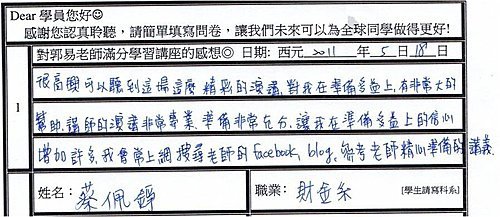 Dear 學員您好☺
感謝您認真聆聽,請簡單填寫問卷,讓我們未來可以為全球同學做得更好!
對郭易老師滿分學習講座的感想◎ 日期: 西元 2011 年 5 月 18 日
1
很高興可以聽到這場這麼精彩的演講,對我在準備多益上,有非常大的
幫助,講師的演講非常專業,準備非常充分,讓我在準備多益上的信心
增加許多,我會常上網搜尋老師的facebook, blog, 參考老師精心準備的講義.
姓名: 蔡佩錚
職業: 財金系 [學生請寫科系]